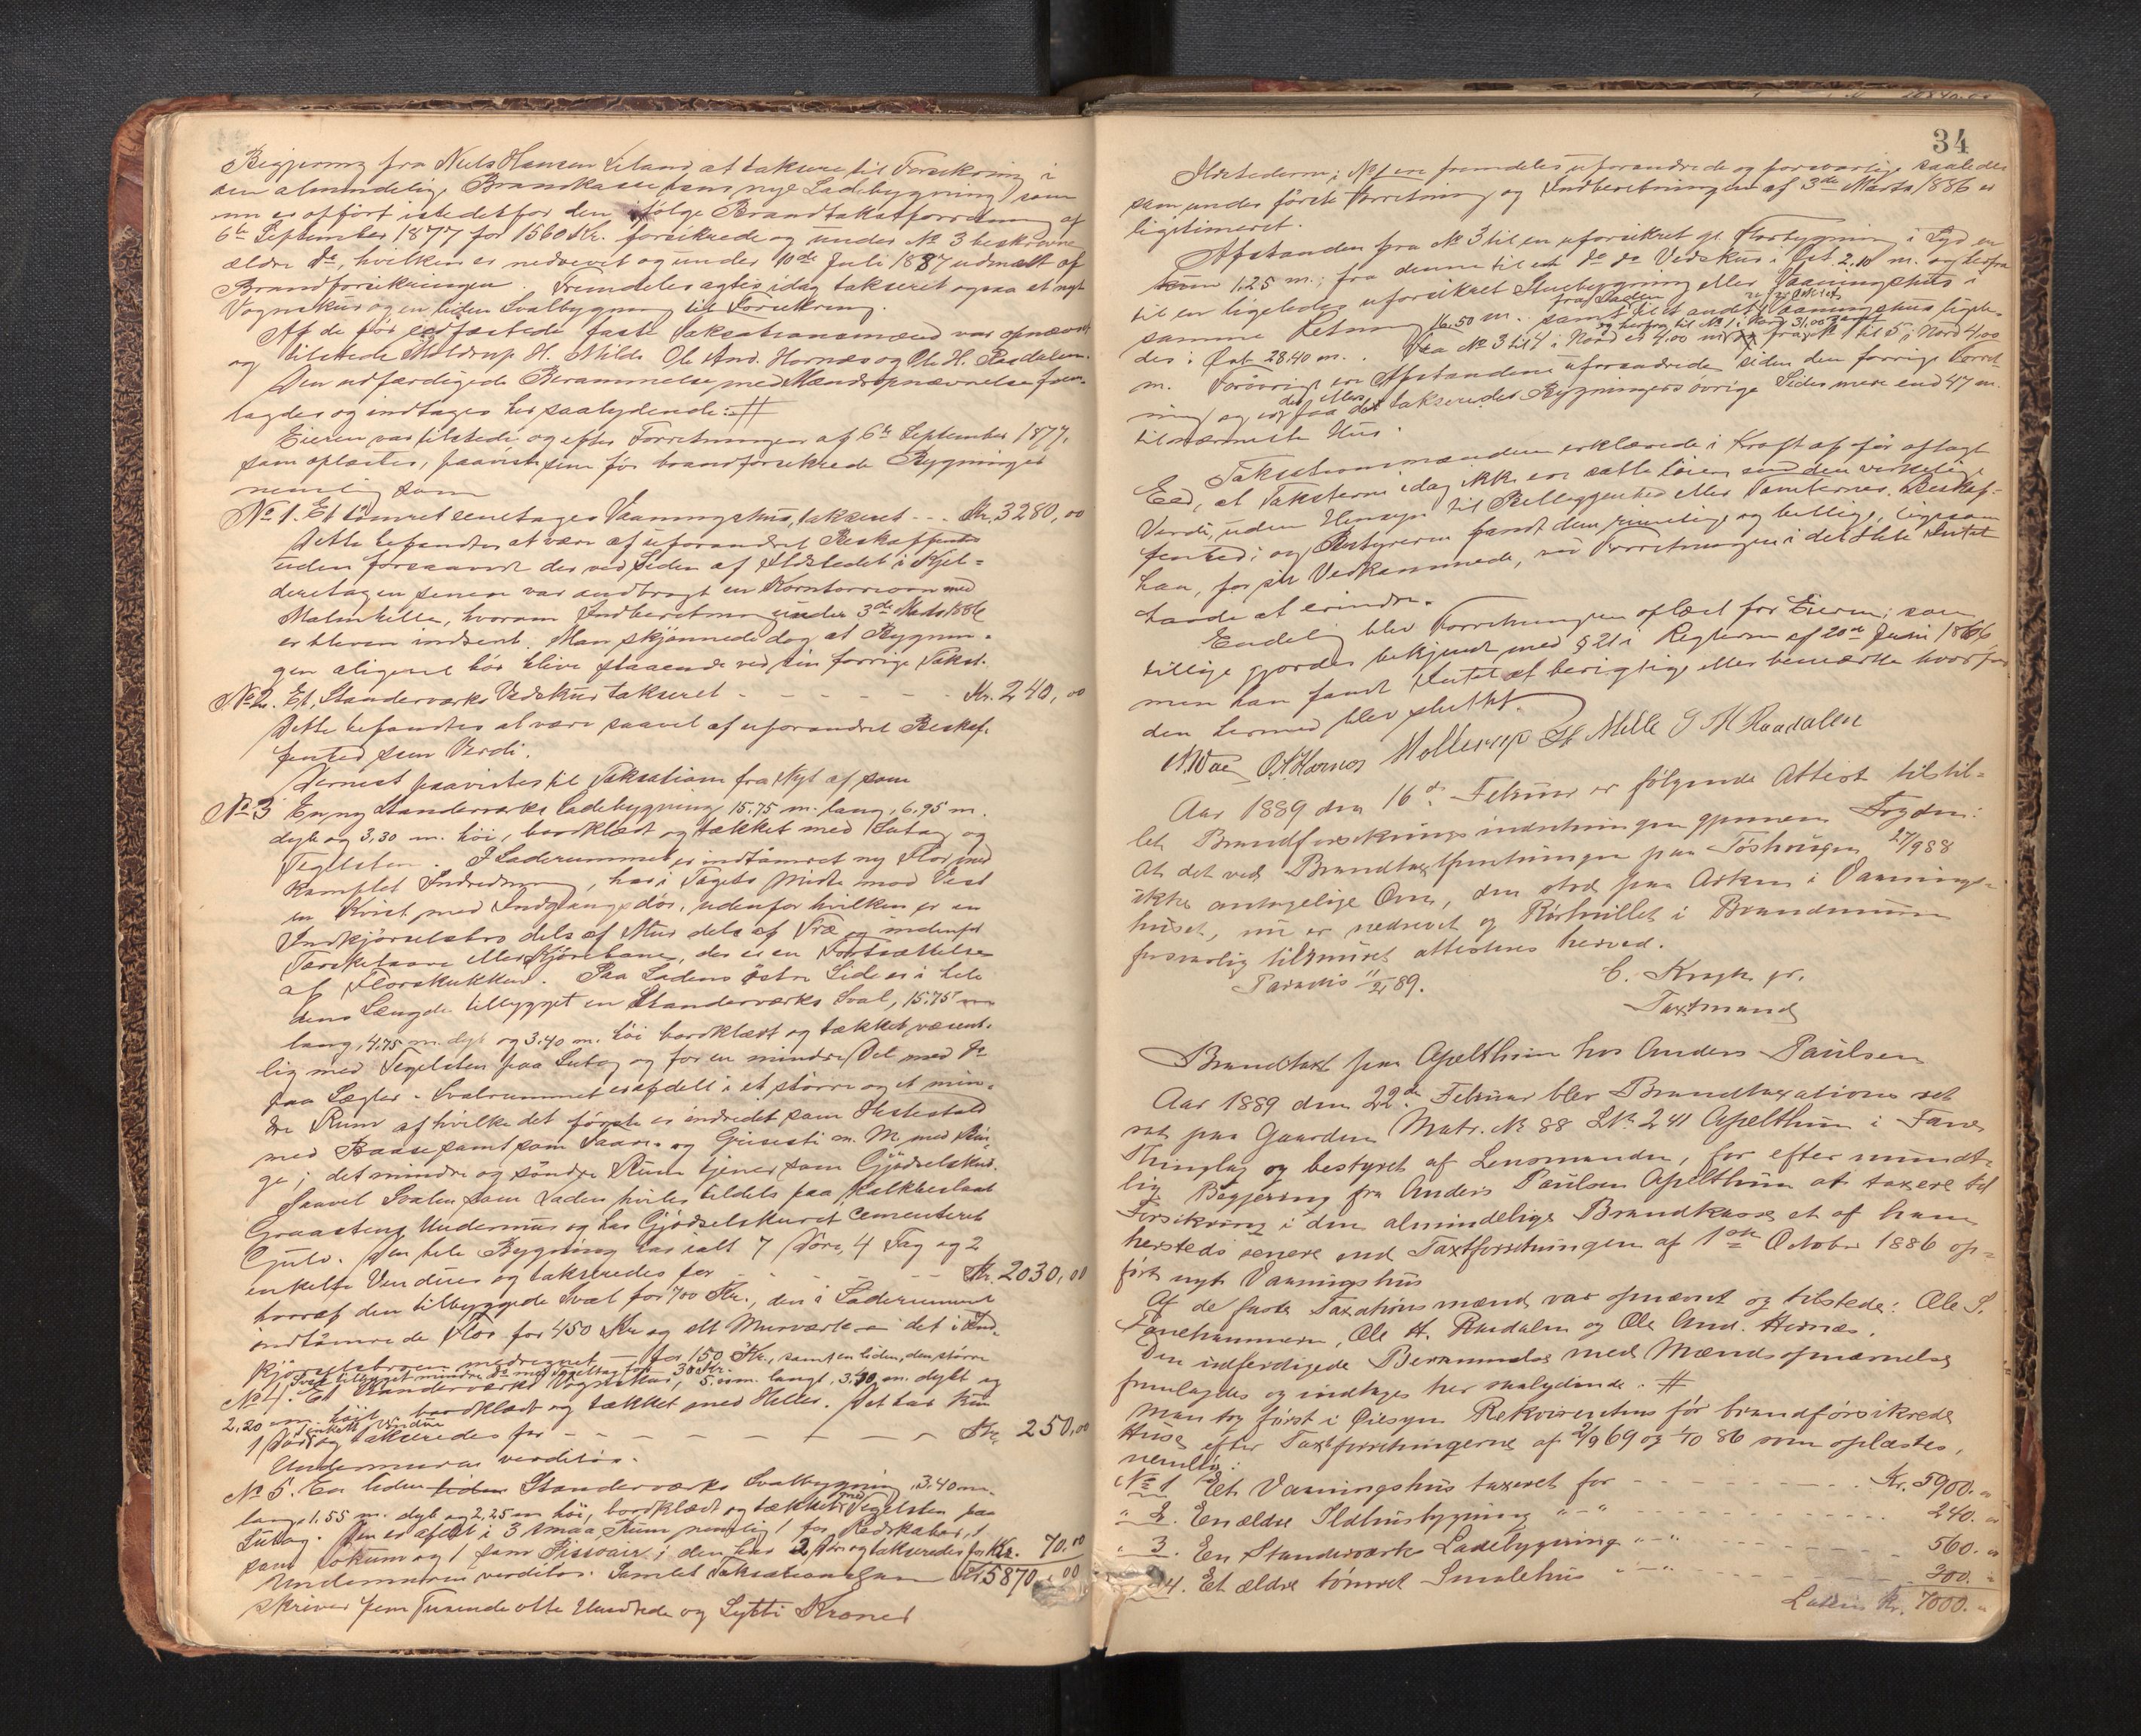 Begjæring fra Niels Hansen Titland, at taksere til Forsikring i
den almindelige Brandkasse hans nye Ladebygning som
nu er opført istedetfor den ifølge Brandtakstforretning af
6te September 1877 for 1560 Kr. forsikrede og under No 3 beskrevne
ældre do, hvilken er nedrevet og under 10de Juli 1887 udmeldt af
Brandforsikringen. Fremdeles agtes idag takseret ogsaa et nyt
Vognskur og en liden Svalbygning til Forsikring.
Af de før edfæstede faste Taksationsmænd var opnævnt
og tilstede Moldrup H. Milde Ole And. Hornæs og Ole H. Raadalen.
Den udfærdigede Berammelse med Mændsopnævnelse frem-
lagdes og indtages her saalydende: #
Eieren var tilstede og efter Forretningen af 6te September 1877,
som oplæstes, paavistes hans før brandforsikrede Bygninger
nemlig som
No 1. Et tømret eenetages Vaaningshus, takseret - - - Kr. 3280,00
Dette befandtes at være af uforandret Beskaffenhed
uden forsaavidt der ved Siden af Ildstedet i Kjel-
deretagen senere var anbragt en Korntørreovn med
Malmhelle, hvorom Indberetning under 3de Marts 1886
er bleven indsendt. Man skjønnede dog at Bygnin-
gen aligevel bør blive staaende ved sin forrige Takst.
No 2. Et Standerværks Vedskur takseret - - - - - - Kr. 240,00
Dette befandtes at være saavel af uforandret Beskaf-
fenhed som Verdi.
Dernæst paavistes til Taksation fra Nyt af som
No 3 En ny Standerværks Ladebygning 15.75 m. lang, 6.95 m.
dyb og 3,30 m. høi, bordklædt og tækket med Sutag og
Tegelsten. I Laderummet er indtømret ny Flor med
komplet Indredning, har i Tagets Midte mod Vest
en Kvist med Indgangsdør, udenfor hvilken er en
Indkjørselsbro dels af Mur dels af Træ og indenfor
Tærskelaave eller Kjørebane, der er en Fortsættelse
af Florskukken. Paa Ladens østre Side er i hele
dens Længde tilbygget en Standerværks Sval, 15.75 m
lang, 4.75 m. dyb og 3.40 m. høi bordklædt og tækket væsent-
lig med Tegelsten paa Sutag og for en mindre Del med do
paa Lægter. Svalrummet er afdelt i et større og et min-
dre Rum af hvilke det første er indredet som Hestestald
med Baase samt som Faare- og Grisesti m. M. med Bin-
ge; det mindre og søndre Rum tjener som Gjødselskur.
Saavel Svalen som Laden hviler tildels paa kalkbeslaaet
Graastens Undermur og har Gjødselskuret cementeret
Gulv. Den hele Bygning har ialt 7 Døre, 4 Fag og 2
enkelte Vinduer og takseredes for - - - - - - Kr. 2030,00
hvoraf den tilbyggede Sval for 700 Kr., den i Laderummet
indtømrede Flor for 450 Kr og alt Murværk - det i Ind-
kjørselsbroen medregnet - for 150 Kr., samt en liden, den større
Sval tilbygget mindre do med Tegeltag for 30 Kr.
No 4. Et Standerværks Vognskur, 5.00 m. langt, 3.30 m. dybt og
2,20 m. høit, bordklædt og tækket med Heller. Det har kun
1 Dør og 1 enkelt Vindue takseredes for - - - - - - Kr. 250,00
Undermuren verdiløs.
No 5. En liden Standerværks Svalbygning, 3.40 m.
lang, 1.55 m. dyb og 2.25 m høi, bordklædt og tækket med Tegelsten paa
Sutag. Den er afdelt i 3 smaa Rum nemlig 1 for Redskaber, 1
som Lokum og 1 som Pissoair; den har 2 Døre og takseredes for Kr. 70.00
Undermuren verdiløs. Samlet Taksationssum Kr 5870,00
skriver fem Tusende otte Hundrede og Sytti Kroner
34
Ildstederne i No 1 ere fremdeles uforandrede og forsvarlige saaledes
som under første Forretning og Indberetningen af 3de Marts 1886 er
ligitimeret.
Afstanden fra No 3 til en uforsikret gl. Florbygning i Syd er
kun 1.25 m.; fra denne til et do do Vedskur i Øst 2.10 m. og herfra
til en ligeledes uforsikret Stuebygning eller Vaaningshus i
samme Retning 16.50 m. samt fra Laden til et andet Vaaningshus ligele-
des i Øst 28.40 m. Fra No 3 til 4 i Nord er 4.00 m og herfra til No 1 i Nord 31.00 fra No 1 til 5 i Nord 4.00
m. Forøvrigt ere Afstandene uforandrede siden den forrige Forret-
ning og er der fra de takserede Bygningers øvrige Sider mere end 47 m.
til nærmeste Hus.
Taksationsmændene erklærede i Kraft af før aflagt
Eed, at Taksterne idag ikke ere satte høiere end den virkelige
Verdi, uden Hensyn til Beliggenhed eller Tomternes Beskaf-
fenhed; og Bestyreren fandt dem rimelige og billige, ligesom
han, for sit Vedkommende, ved Forretningen i det Hele Intet
havde at erindre.
Endelig blev Forretningen oplæst for Eieren, som
tillige gjordes bekjendt med § 21 i Reglerne af 20de Juni 1866
men han fandt Intet at berigtige eller bemærke hvorfor
den hermed blev sluttet.
N. Wae O. A. Hornæs Mollerup H. Milde O H Raadalen
Aar 1889 den 16de Februar er følgende Attest tilstil-
let Brandforsikringsindretningen gjennem Fogden:
At det ved Brandtaxtforretningen paa Toshougen 27/9 88
ikke antagelige Ovn, der stod paa Arken i Vaanings-
huset, nu er nedrevet og Rørhullet i Brandmuren
forsvarlig tilmuret attesteres herved.
Paradis 11/2 89.
C. Krogh jr.
Taxtmand
Brandtaxt paa Apelthun hos Anders Paulsen
Aar 1889 den 22de Februar blev Brandtaxationsret
sat paa Gaarden Matr. No 88 LNo 241 Apelthun i Fane
Thinglag og bestyret af Lensmanden, for efter mundt-
lig Begjæring fra Anders Paulsen Apelthun at taxere til
Forsikring i den almindelige Brandkasse et af ham
hersteds senere end Taxtforretningen af 1ste October 1886 op-
ført nyt Vaaningshus
Af de faste Taxationsmænd var opnævnt og tilstede: Ole S.
Fanehammeren, Ole H. Raadalen og Ole And. Hornæs.
Den udferdigede Berammelse med Mændsopnævnelse
fremlagdes og indtages her saalydende. #
Man tog først i Øiesyn Rekvirentens før brandforsikrede
Huse efter Taxtforretningerne af 2/9 69 og 1/10 86 som oplæstes,
nemlig:
No 1 Et Vaaningshus taxeret for - - - - - - Kr. 5900. "
" 2. En ældre Ildhusbygning " - " - - - - - - 240. "
" 3. En Standerværks Ladebygning " - " - - - - - 560. "
" 4. Et ældre tømret Smalehus " - " - - - - - 300. "
Lateris Kr. 7000. "